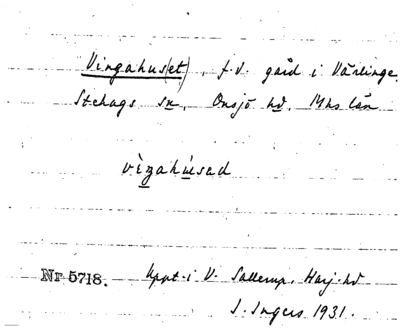 Vingahus(et), f.d. gård i Värlinge
Stehags sn, Onsjö hd. Mhs län
vìzahúsad
Nr 5718. Uppt. i V. Sallerup, Harj. hd
I. Ingers 1931.